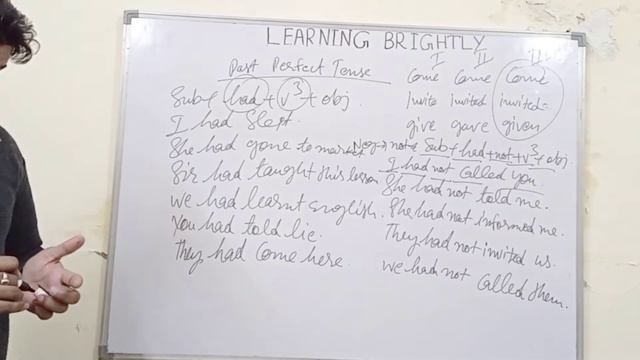 LEARNING BRIGHTLY
Past Perfect Tense
Sub + had + v3 + obj.
I had slept.
She had gone to market
Sir had taught this lesson
We had learnt english.
You had told lie.
They had come here.
I II III
Come Came Come
Invite Invited invited=
give gave given
Neg → not = Sub + had + not + v3 + obj
I had not called you.
She had not told me.
She had not informed me.
They had not invited us.
we had not called them.